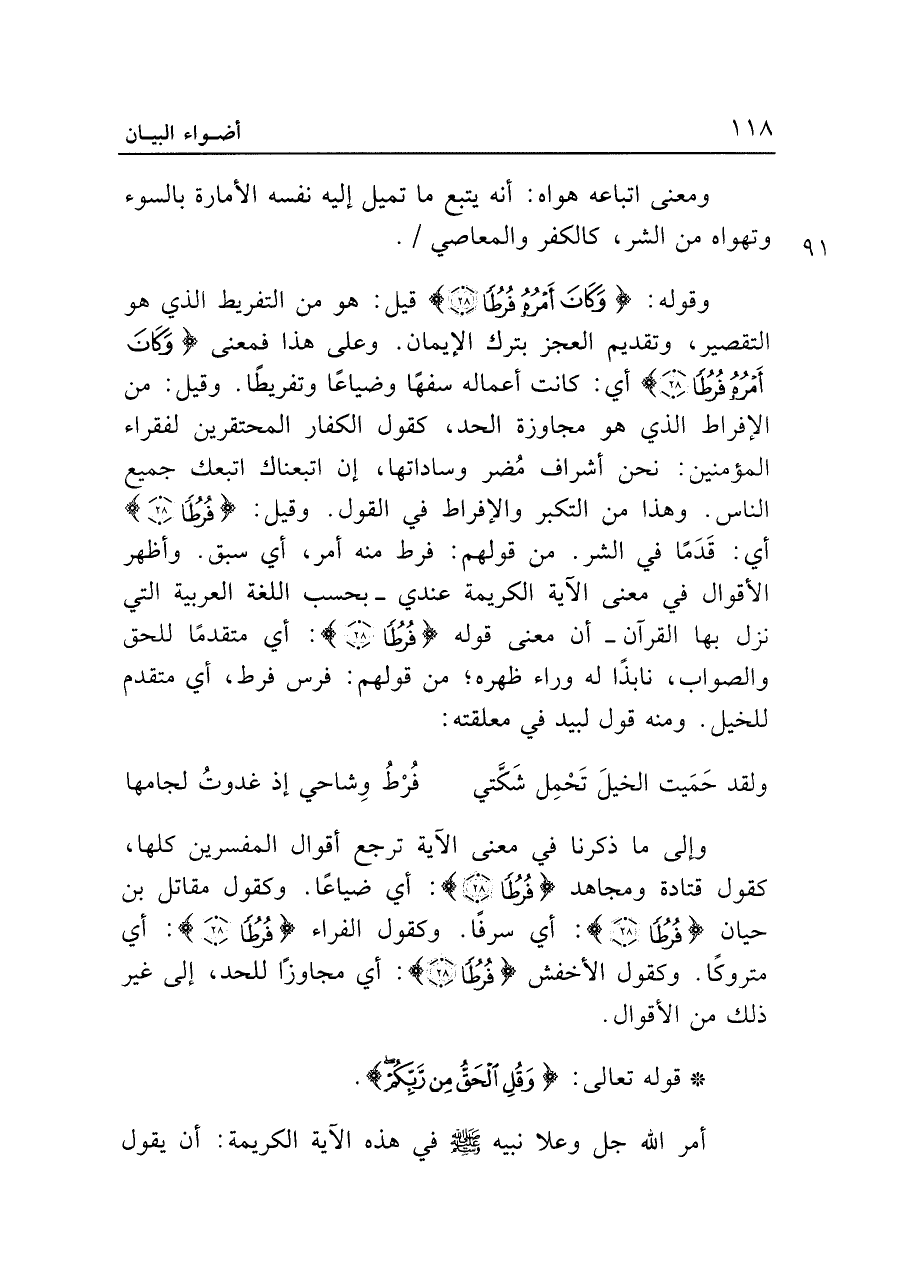 ١١٨ أضواء البيان
ومعنى اتباعه هواه: أنه يتبع ما تميل إليه نفسه الأمارة بالسوء
وتهواه من الشر، كالكفر والمعاصي / . ٩١
وقوله: ﴿ وَكَانَ أَمْرُهُۥ فُرُطًا ۝٢٨﴾ قيل: هو من التفريط الذي هو
التقصير، وتقديم العجز بترك الإيمان. وعلى هذا فمعنى ﴿ وَكَانَ
أَمْرُهُۥ فُرُطًا ۝٢٨﴾ أي: كانت أعماله سفهًا وضياعًا وتفريطًا. وقيل: من
الإفراط الذي هو مجاوزة الحد، كقول الكفار المحتقرين لفقراء
المؤمنين: نحن أشراف مُضر وساداتها، إن اتبعناك اتبعك جميع
الناس. وهذا من التكبر والإفراط في القول. وقيل: ﴿ فُرُطًا ۝٢٨ ﴾
أي: قَدَمًا في الشر. من قولهم: فرط منه أمر، أي سبق. وأظهر
الأقوال في معنى الآية الكريمة عندي ـ بحسب اللغة العربية التي
نزل بها القرآن ـ أن معنى قوله ﴿ فُرُطًا ۝٢٨﴾: أي متقدمًا للحق
والصواب، نابذًا له وراء ظهره؛ من قولهم: فرس فرط، أي متقدم
للخيل. ومنه قول لبيد في معلقته:
ولقد حَمَيت الخيلَ تَحْمِل شَكَّتي فُرْطُ وِشاحي إذ غدوتُ لجامها
وإلى ما ذكرنا في معنى الآية ترجع أقوال المفسرين كلها،
كقول قتادة ومجاهد ﴿ فُرُطًا ۝٢٨﴾: أي ضياعًا. وكقول مقاتل بن
حيان ﴿ فُرُطًا ۝٢٨﴾: أي سرفًا. وكقول الفراء ﴿ فُرُطًا ۝٢٨﴾: أي
متروكًا. وكقول الأخفش ﴿ فُرُطًا ۝٢٨﴾: أي مجاوزًا للحد، إلى غير
ذلك من الأقوال.
* قوله تعالى: ﴿ وَقُلِ ٱلْحَقُّ مِن رَّبِّكُمْۖ﴾.
أمر الله جل وعلا نبيه ﷺ في هذه الآية الكريمة: أن يقول